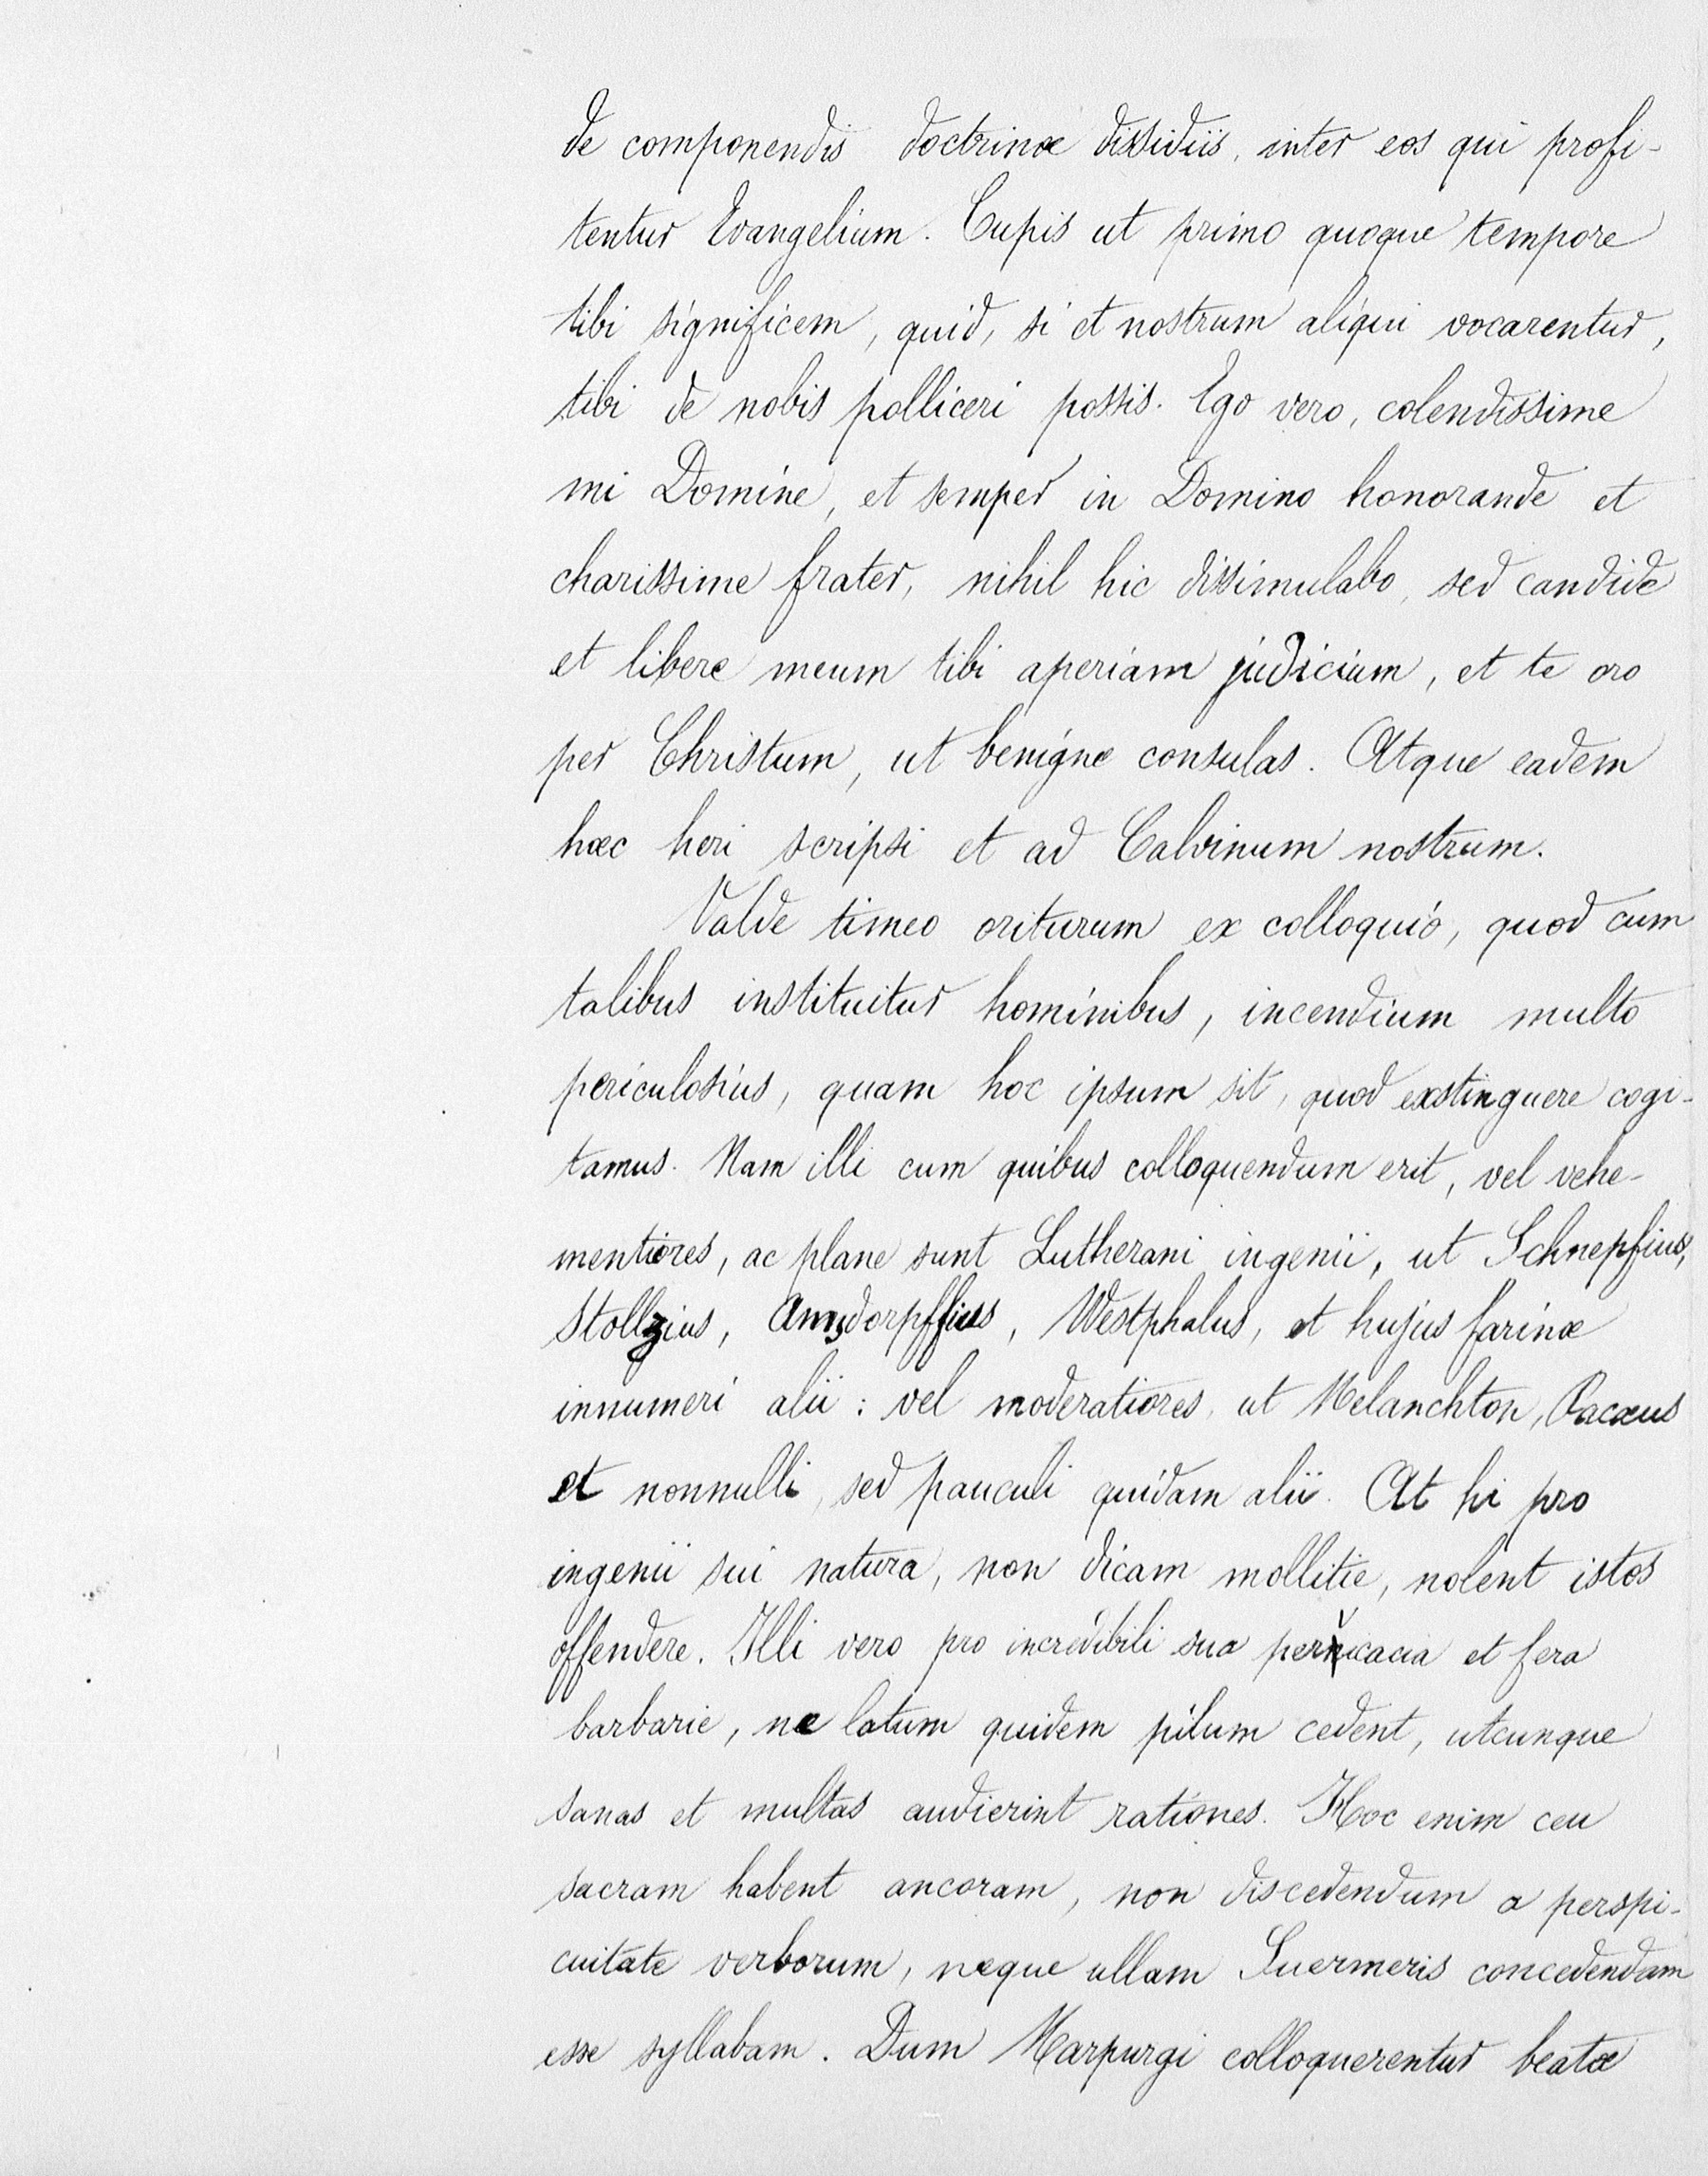 de componendis doctrinæ dissidiis, inter eos qui profi-
tentur Evangelium. Cupis ut primo quoque tempore
tibi significem, quid, si et nostrum aliqui vocarentur,
tibi de nobis polliceri possis. Ego vero, colendissime
mi Domine, et semper in Domino honorande et
charissime frater, nihil hic dissimulabo, sed candide
et libere meum tibi aperiam judicium, et te oro
per Christum, ut benigne consulas. Atque eadem
hæc heri scripsi et ad Calvinum nostrum.
Valde timeo oriturum ex colloquio, quod cum
talibus instituitur hominibus, incendium multo
periculosius, quam hoc ipsum sit, quod exstinguere cogi-
tamus. Nam illi cum quibus colloquendum erit, vel vehe-
mentiores, ac plane sunt Lutherani ingenii, ut Schnepfius,
Stollzius, Amsdorpffius, Westphalus, et hujus farinæ
innumeri alii : vel moderatiores, ut Melanchton, Pacæus
et nonnulli, sed pauculi quidam alii. At hi pro
ingenii sui natura, non dicam mollitie, nolent istos
offendere. Illi vero pro incredibili sua pervicacia et fera
barbarie, ne latum quidem pilum cedent, utcunque
sanas et multas audierint rationes. Hoc enim ceu
sacram habent ancoram, non discedendum a perspi-
cuitate verborum, neque ullam Suermeris concedendam
esse syllabam. Dum Marpurgi colloquerentur beatæ